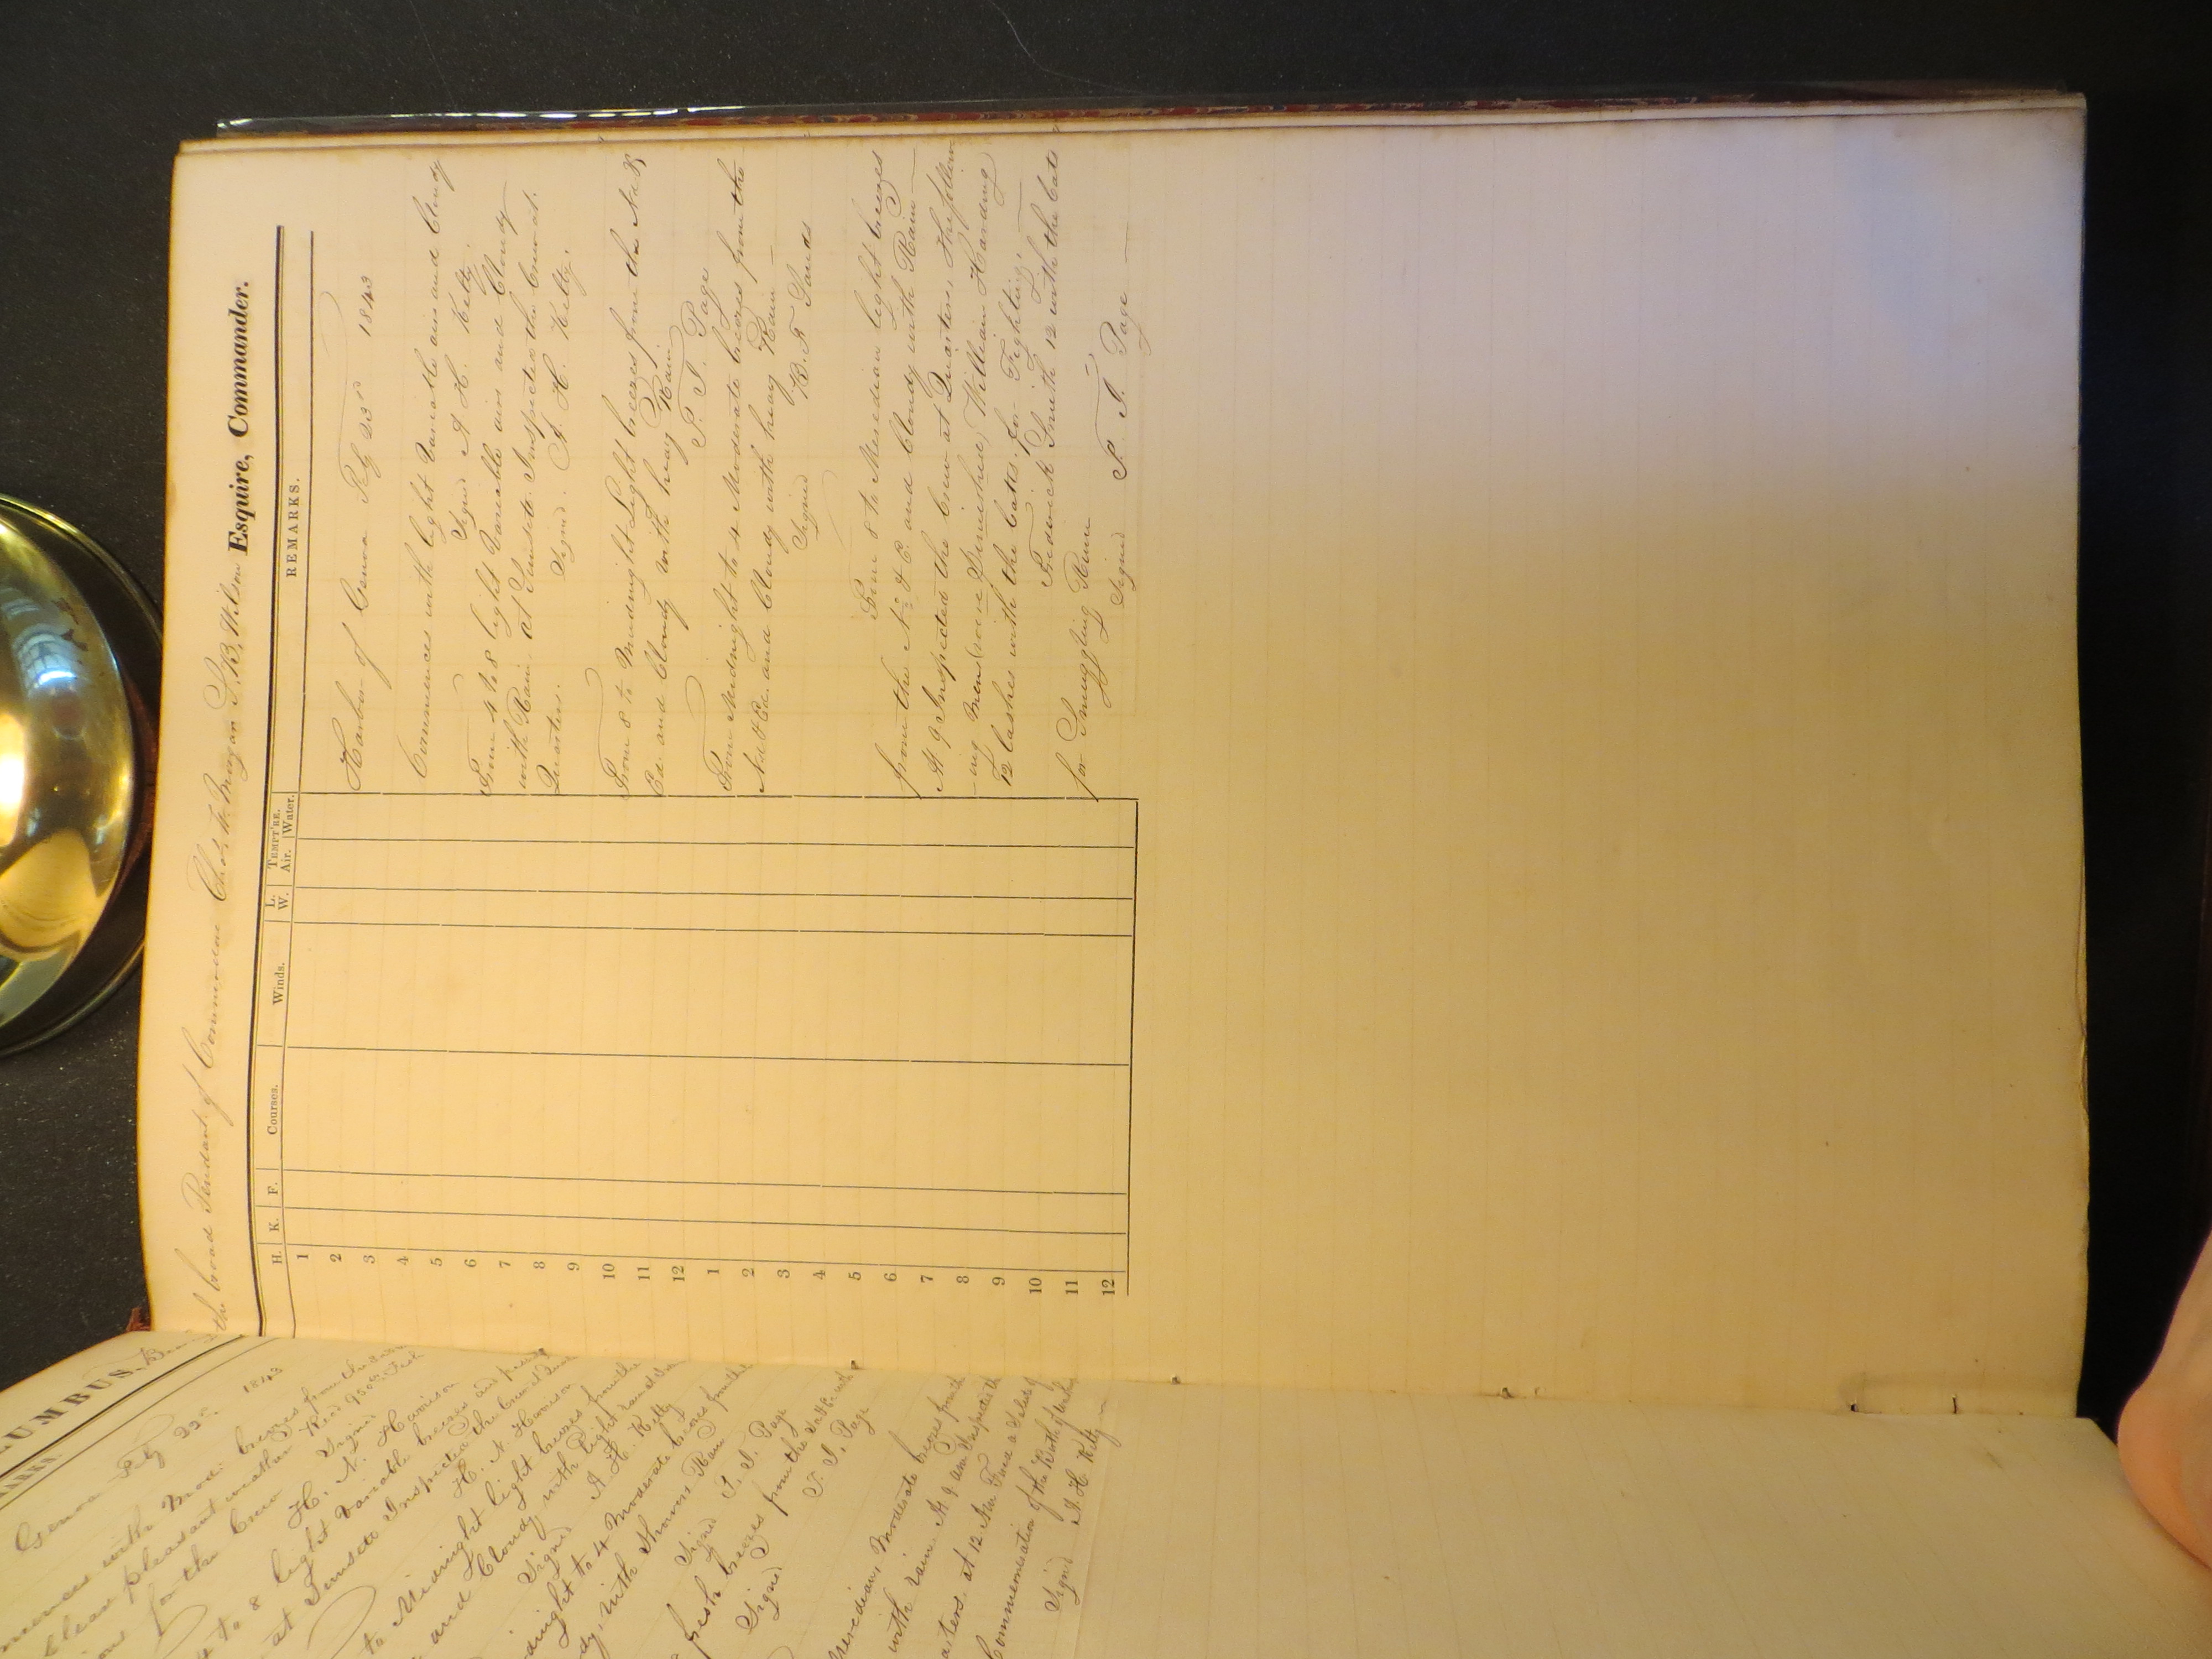 UMBUS, Bea
ARKS.
Genoa Feby 22d 1843
mences with Mod. breezes from the
Clear pleasant weather Recd 950 lbs Fresh
ions for the Crew Signed
H. N. Harrison
to 8 light Variable breezes and
at Sunset Inspected the Crew at
H. N. Harrison
to Midnight light breezes from the
and Cloudy with light
Signed A. H. Kelty
dnight to 4 Moderate breezes from the
dy, with Showers Rain
Signed P. I. Page
fresh breezes from the Nd & Ed with
Signed P. I. Page
Meredian, Moderate breezes from the
with rain. At 9 am Inspected the
arters, at 12 Am Fired a Salute of
Commemoration of the Birth of
Signed A. H. Kelty
the broad Pendant of Commodore Chas. W. Morgan S. B. Wilson Esquire, Commander.
H. K. F. Courses. Winds. L. W. TEMPT'RE. Air. Water. REMARKS.
1
2
3
4
5
6
7
8
9
10
11
12
1
2
3
4
5
6
7
8
9
10
11
12
Harbor of Genoa Feby 23d 1843
Commences with light Variable airs and Cloudy
Signed A. H. Kelty.
From 4 to 8 light Variable airs and Cloudy
with Rain. At Sunset Inspected the Crew at
Quarters. Signed. A. H. Kelty.
From 8 to Midnight Light breezes from the Nd &
Ed. and Cloudy with heavy Rain
P. I. Page
From Midnight to 4 Moderate breezes from the
Nd & Ed. and Cloudy with heavy Rain
Signed B. F. Sands
From 8 to Meredian light breezes
from the Nd & E. and Cloudy with Rain
At 9 Inspected the Crew at Quarters, the follow
-ing Men were Punished, William Harding
12 lashes with the Catts. for Fighting,
Frederick Smith 12 with the Cats
for Smuggling Rum
Signed P. I. Page